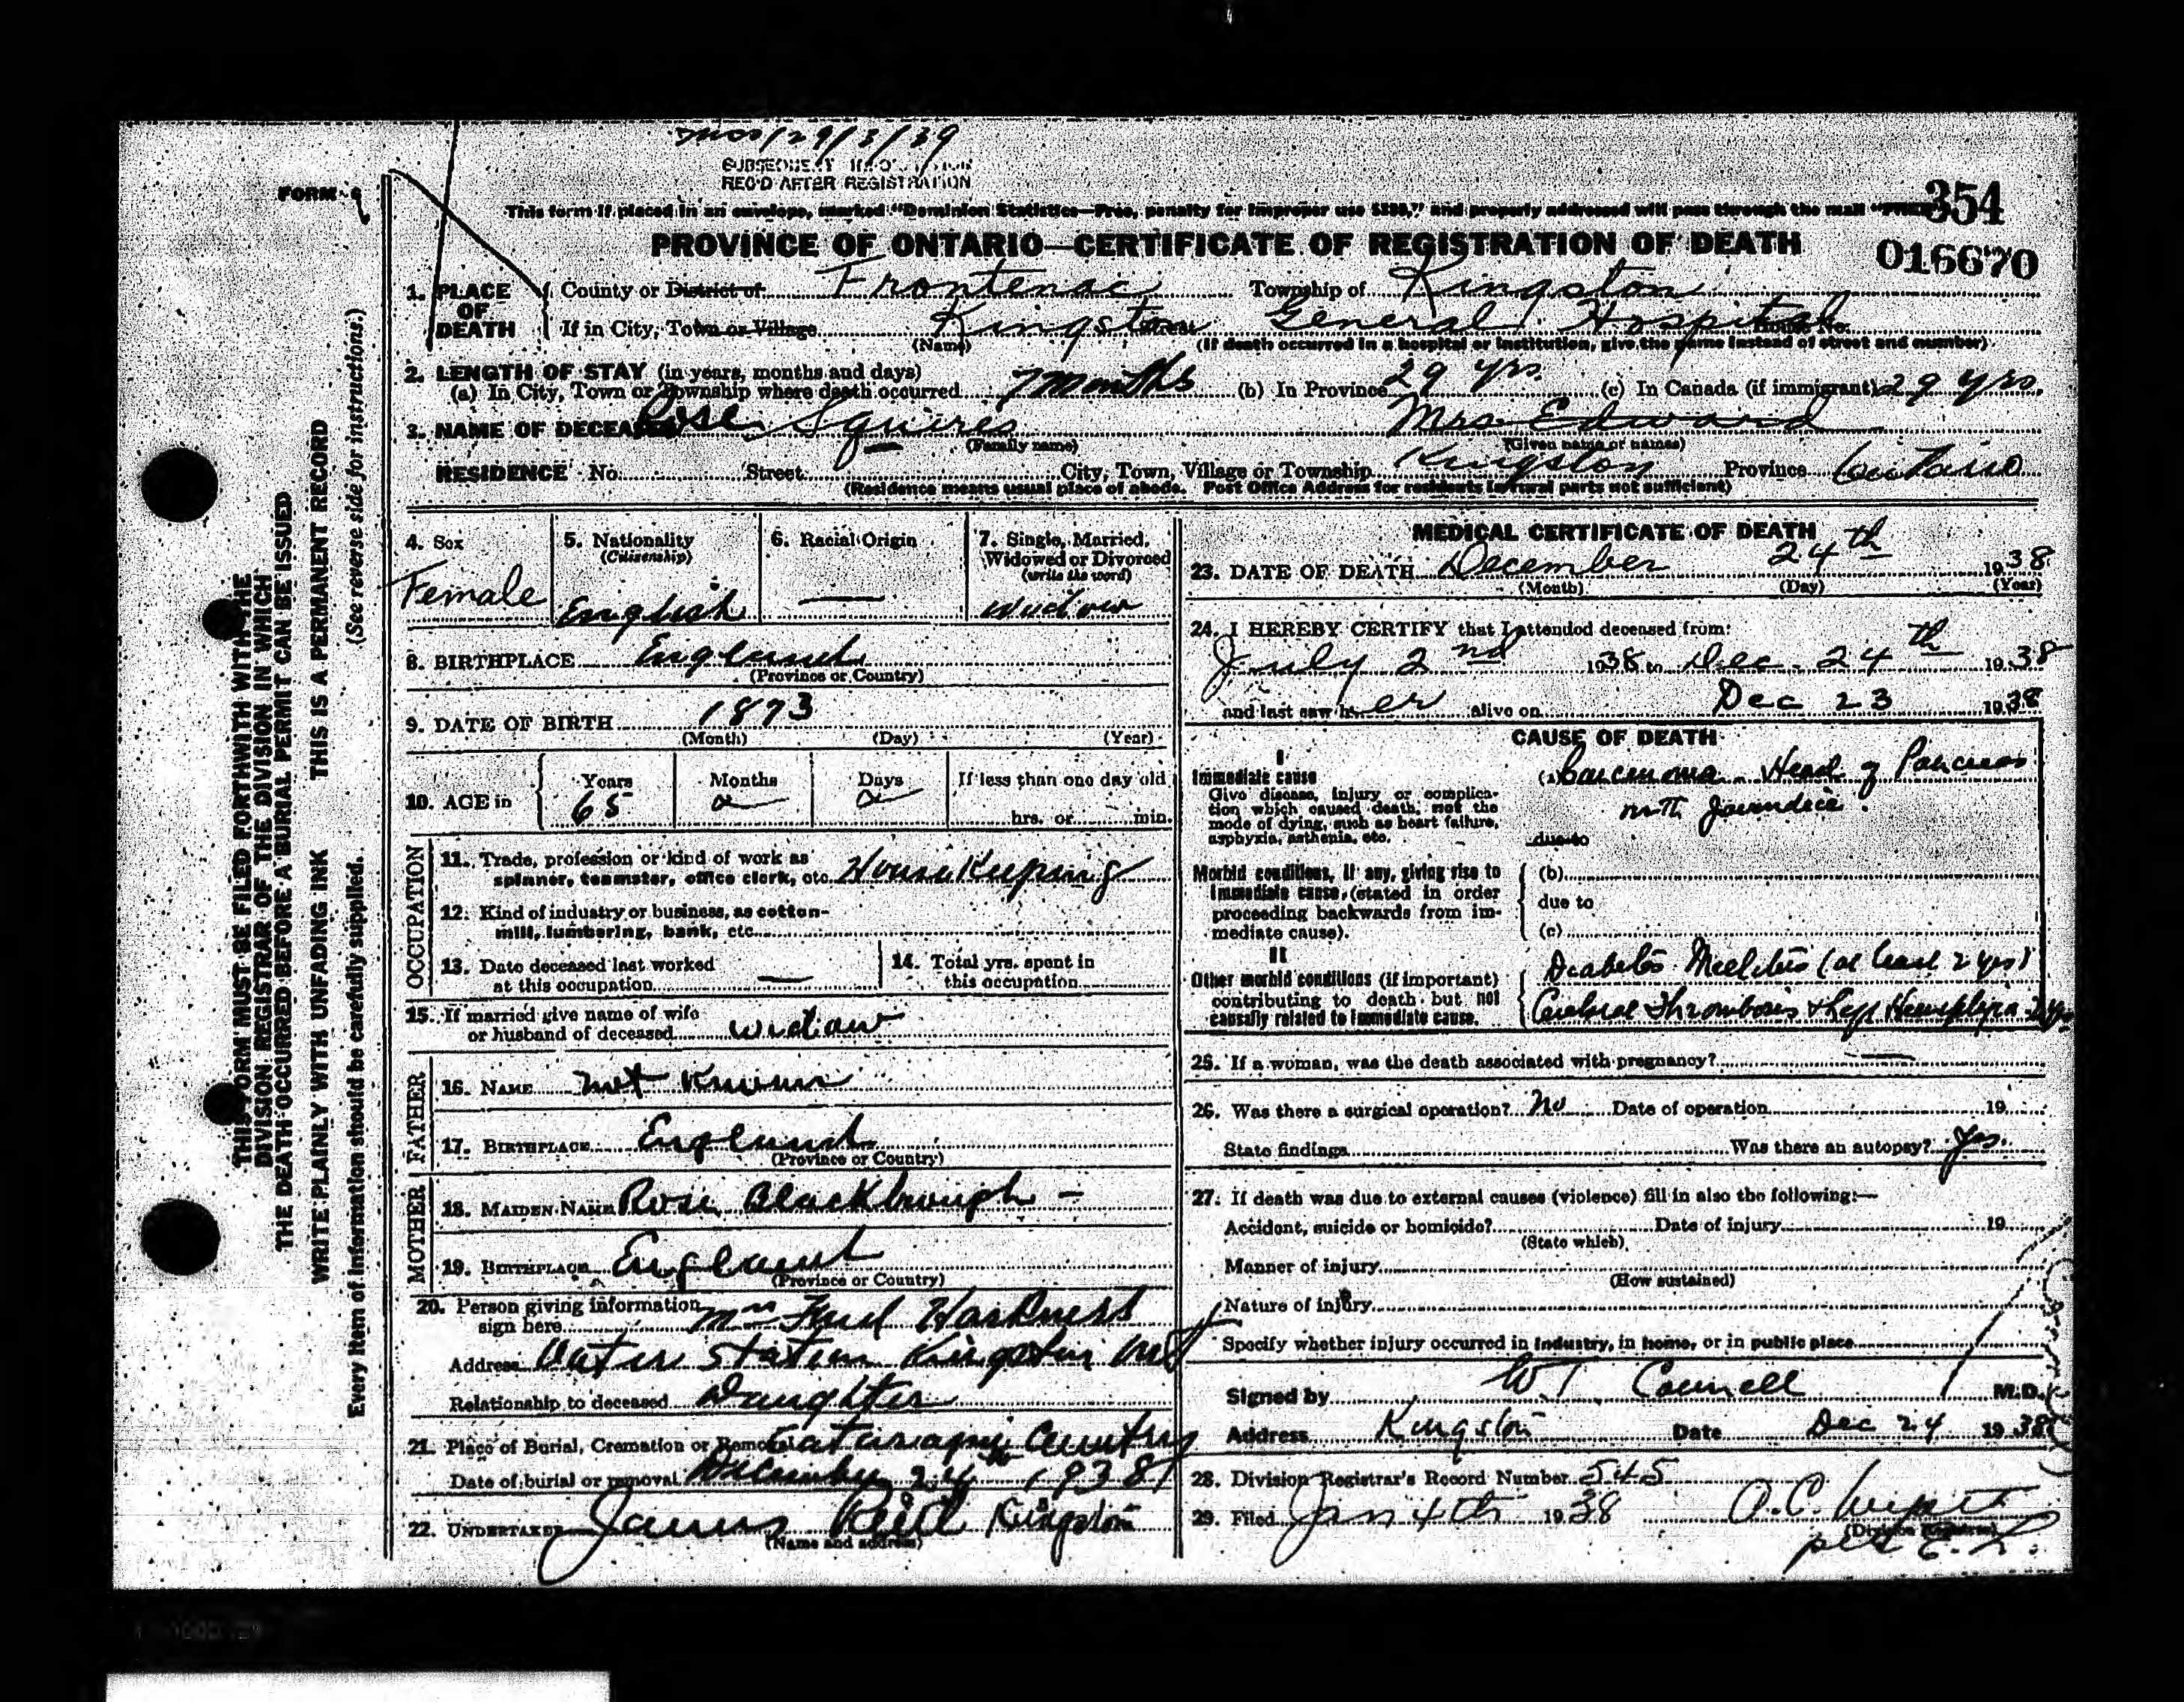 29/3/39
SUBSEQUENT INFORMATION
REC'D AFTER REGISTRATION
FORM 9
354
This form if placed in an envelope, marked "Dominion Statistics—Free, penalty for improper use $300," and properly addressed will pass through the mail
PROVINCE OF ONTARIO—CERTIFICATE OF REGISTRATION OF DEATH
016670
1. PLACE OF DEATH
County or District of Frontenac Township of Kingston
If in City, Town or Village Kingston Street General Hospital House No.
(Name) (If death occurred in a hospital or institution, give the name instead of street and number)
2. LENGTH OF STAY (in years, months and days)
(a) In City, Town or Township where death occurred 7 months (b) In Province 29 yrs. (c) In Canada (if immigrant) 29 yrs.
3. NAME OF DECEASED Rose Squires Mrs Edward
(Family name) (Given name or names)
RESIDENCE No. Street City, Town, Village or Township Kingston Province Ontario
(Residence means usual place of abode. Post Office Address for residents in rural parts not sufficient)
4. Sex Female
5. Nationality (Citizenship) English
6. Racial Origin —
7. Single, Married, Widowed or Divorced (write the word) Widow
8. BIRTHPLACE England
(Province or Country)
9. DATE OF BIRTH 1873
(Month) (Day) (Year)
10. AGE in Years 65 Months Days If less than one day old hrs. or min.
OCCUPATION
11. Trade, profession or kind of work as spinner, teamster, office clerk, etc. House Keeping
12. Kind of industry or business, as cotton-mill, lumbering, bank, etc.
13. Date deceased last worked at this occupation —
14. Total yrs. spent in this occupation
15. If married give name of wife or husband of deceased widow
FATHER
16. NAME not known
17. BIRTHPLACE England
(Province or Country)
MOTHER
18. MAIDEN NAME Rose Blackbrough —
19. BIRTHPLACE England
(Province or Country)
20. Person giving information sign here Mrs Harkness
Address Station Kingston Ont
Relationship to deceased Daughter
21. Place of Burial, Cremation or Removal Cataraqui Cemetery
Date of burial or removal December 1938
22. UNDERTAKER James Reid Kingston
(Name and address)
MEDICAL CERTIFICATE OF DEATH
23. DATE OF DEATH December 24th 1938
(Month) (Day) (Year)
24. I HEREBY CERTIFY that I attended deceased from:
July 2nd 1938 to Dec. 24th 1938
and last saw her alive on Dec 23 1938
CAUSE OF DEATH
I
Immediate cause
Give disease, injury or complication which caused death, not the mode of dying, such as heart failure, asphyxia, asthenia, etc.
(a) Carcinoma Head of Pancreas
with Jaundice.
due to
Morbid conditions, if any, giving rise to immediate cause, (stated in order proceeding backwards from immediate cause).
(b)
due to
(c)
II
Other morbid conditions (if important) contributing to death but not causally related to immediate cause.
Diabetes Mellitus (at least 2 yrs)
Cerebral Thrombosis & Left Hemiplegia 2 yrs
25. If a woman, was the death associated with pregnancy? —
26. Was there a surgical operation? No Date of operation 19
State findings Was there an autopsy? Yes.
27. If death was due to external causes (violence) fill in also the following:—
Accident, suicide or homicide? Date of injury 19
(State which)
Manner of injury
(How sustained)
Nature of injury
Specify whether injury occurred in industry, in home, or in public place
Signed by W T Connell M.D.
Address Kingston Date Dec 24 1938
28. Division Registrar's Record Number 545
29. Filed Jan 4th 1938
(Division Registrar)
per E. L.
THIS FORM MUST BE FILED FORTHWITH WITH THE
DIVISION REGISTRAR OF THE DIVISION IN WHICH
THE DEATH OCCURRED BEFORE A BURIAL PERMIT CAN BE ISSUED
WRITE PLAINLY WITH UNFADING INK THIS IS A PERMANENT RECORD
(See reverse side for instructions.)
Every item of information should be carefully supplied.